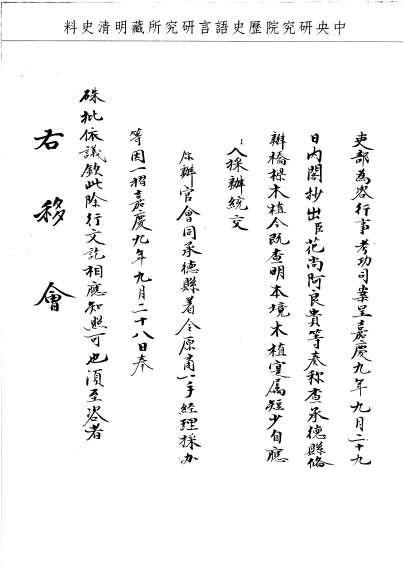 中央研究院歷史語言研究所藏明清史料
吏部為咨行事考功司案呈嘉慶九年九月二十九
日內閣抄出臣花尚阿良貴等奏称查承德縣俻
辦橋樑木植今既查明本境木植寔屬短少自應
入採辦統交
你辦官會同承德縣着令原商一手經理採办
等因一摺嘉慶九年九月二十八日奉
硃批依議欽此除行文訖相應知照可也須至咨者
右移會